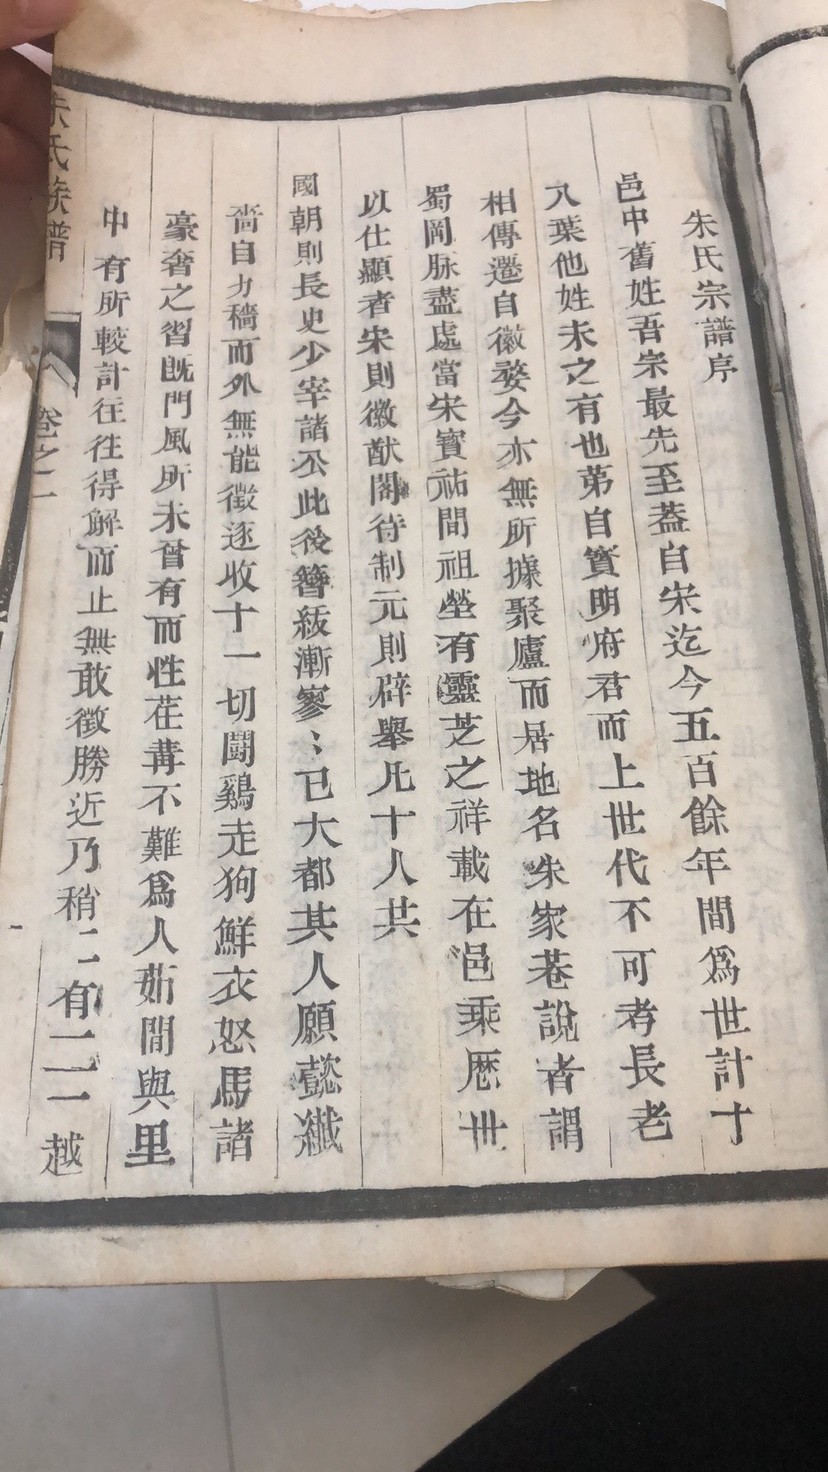 朱氏宗譜序
邑中舊姓吾宗最先至蓋自宋迄今五百餘年間為世計十
八葉他姓未之有也苐自實明府君而上世代不可考長老
相傳遷自徽婺今亦無所據聚廬而居地名朱家巷說者謂
蜀岡脉盡處當宋寶祐間祖塋有靈芝之祥載在邑乘歷世
以仕顯者宋則徽猷閣待制元則辟舉凡十人其
國朝則長史少宰諸公此後簪紱漸寥〻已大都其人願愨纖
嗇自力穡而外無能徵逐收十一切鬪鷄走狗鮮衣怒馬諸
豪奢之習既門風所未嘗有而性荏耎不難為人茹間與里
中有所較計往往得解而止無敢徵勝近乃稍二有一二一越
朱氏族譜
卷之一